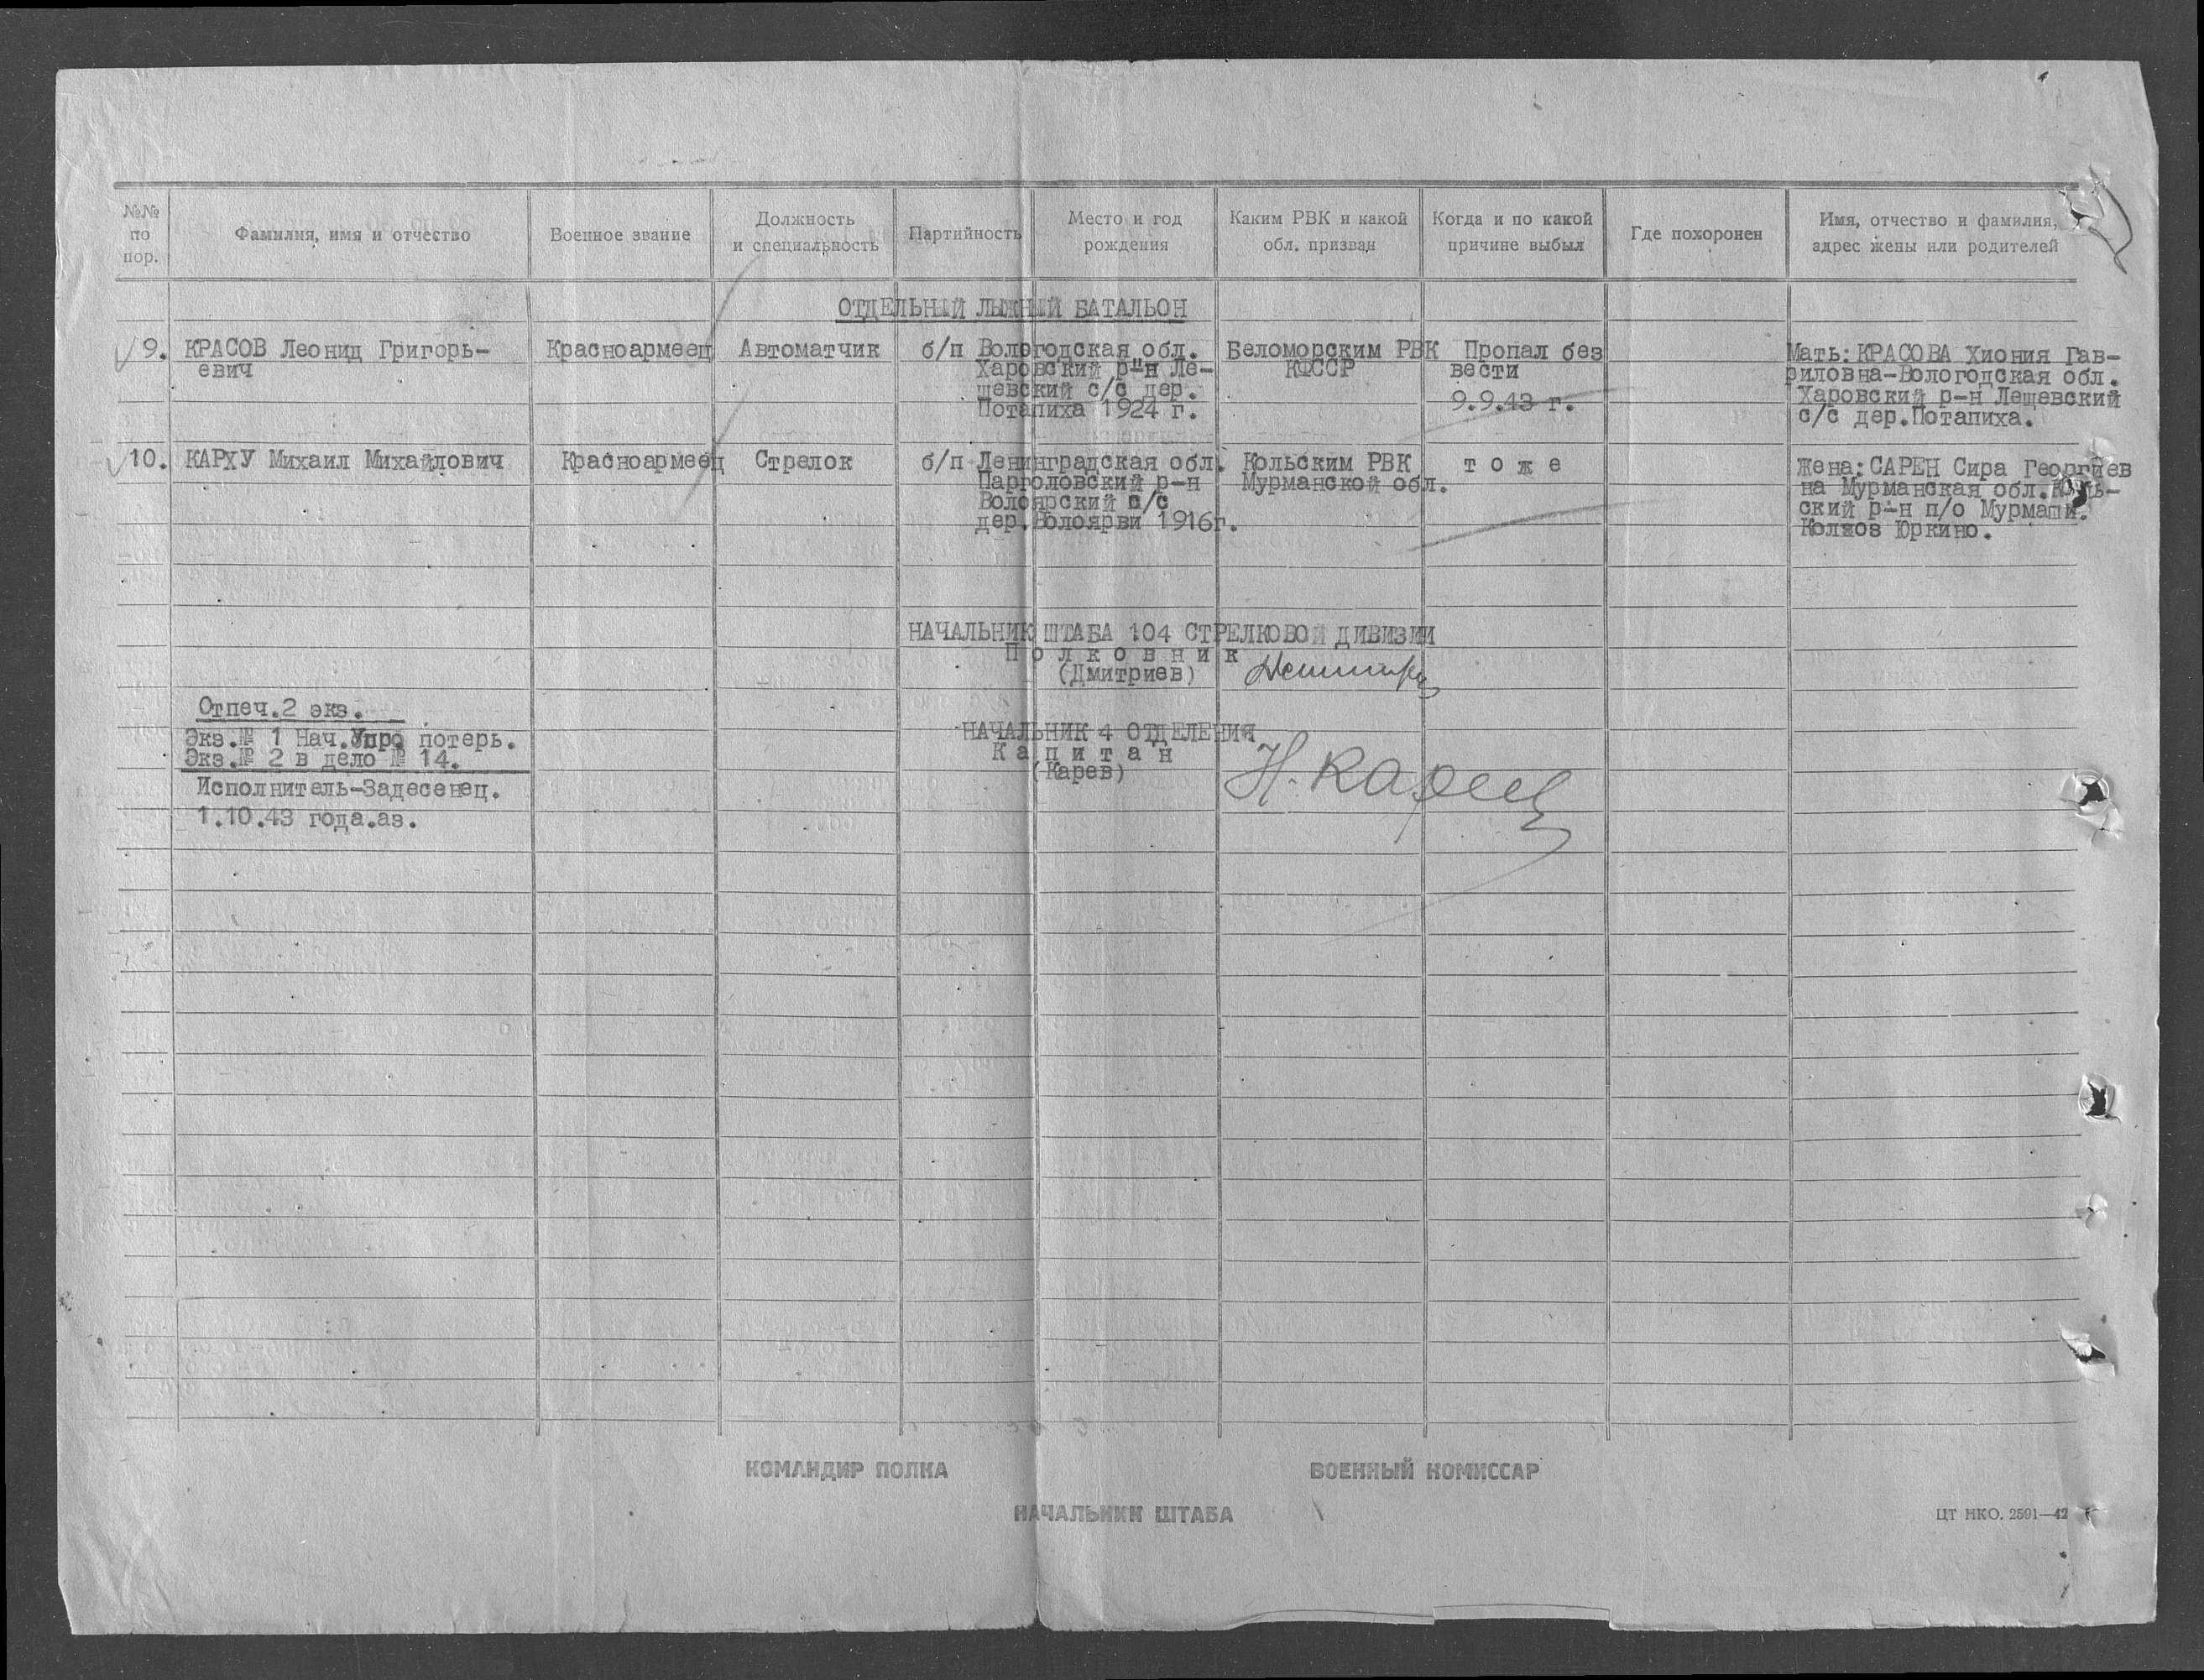 №№ по пор.
Фамилия, имя и отчество
Военное звание
Должность и специальность
Партийность
Место и год рождения
Каким РВК и какой обл. призван
Когда и по какой причине выбыл
Где похоронен
Имя, отчество и фамилия, адрес жены или родителей
ОТДЕЛЬНЫЙ ЛЫЖНЫЙ БАТАЛЬОН
9. КРАСОВ Леонид Григорь-
евич
Красноармеец
Автоматчик
б/п
Вологодская обл.
Харовский р-н Ле-
щевский с/с дер.
Потапиха 1924 г.
Беломорским РВК
КФССР
Пропал без
вести
9.9.43 г.
Мать: КРАСОВА Хиония Гав-
риловна-Вологодская обл.
Харовский р-н Лещевский
с/с дер.Потапиха.
10. КАРХУ Михаил Михайлович
Красноармеец
Стрелок
б/п
Ленинградская обл.
Парголовский р-н
Волоярский с/с
дер.Волоярви 1916г.
Кольским РВК
Мурманской обл.
т о ж е
Жена: САРЕН Сира Георгиев
на Мурманская обл.Коль-
ский р-н п/о Мурмаши.
Колхоз Юркино.
НАЧАЛЬНИК ШТАБА 104 СТРЕЛКОВОЙ ДИВИЗИИ
П о л к о в н и к
(Дмитриев)
НАЧАЛЬНИК 4 ОТДЕЛЕНИЯ
К а п и т а н
(Карев)
Н. Карев
Отпеч.2 экз.
Экз.№ 1 Нач.Упро потерь.
Экз.№ 2 в дело № 14.
Исполнитель-Задесенец.
1.10.43 года.аз.
КОМАНДИР ПОЛКА
ВОЕННЫЙ КОМИССАР
НАЧАЛЬНИК ШТАБА
ЦТ НКО. 2591—42